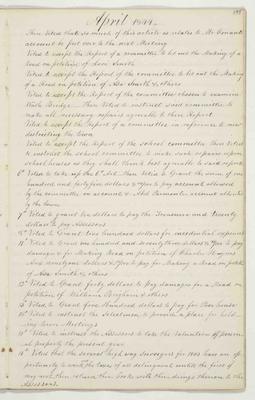 April 1844
Then Voted that so much of this article as relates to Mr Conants
account be put over to the next Meeting
Voted to accept the Report of the committee to let out the Making of a
Road on petition of Levi Smith
Voted to accept the Report of the committee to let out the Making
of a Road on petition of Asa Smith & others
Voted to accept the Report of the committee chosen to examine
Bridge Then Voted to instruct said committee to
make all necessary repairs agreeable to their Report
Voted to accept the Report of a committee in reference to new
districting the Town
Voted to accept the Report of the School committee then Voted
to instruct the school committee to make such repairs upon
school houses as they shall think best agreeable to said report
6th Voted to take up the 6th Art. Then Voted to Grant the sum of one
hundred and forty five dollars to pay accounts allowed
by the committee on accounts & account allowed
by the town
7th Voted to grant ten dollars to pay the Treasurer and Twenty
dollars to pay Assessors
Voted to Grant two hundred dollars for incidental expenses
11th Voted to Grant one hundred and seventy three dollars to pay
damages for Making Road on petition of Charles
And seventy one dollars to pay for Making a Road on petition
of Asa Smith & others
12th Voted to Grant forty dollars to pay damages for a Road on
petition of William Brigham & others
Voted to Grant five Hundred dollars to pay for Poor house
Voted to instruct the Selectmen to provide a place for hold-
ing town Meetings
Voted to instruct the Assessors to take the Valuation of person-
al property the present year
Voted that the several highway Surveyors for 1843 have an op-
portunity to work the taxes of all delinquents untill the first of
then return their books with their doings thereon to the
Assessors